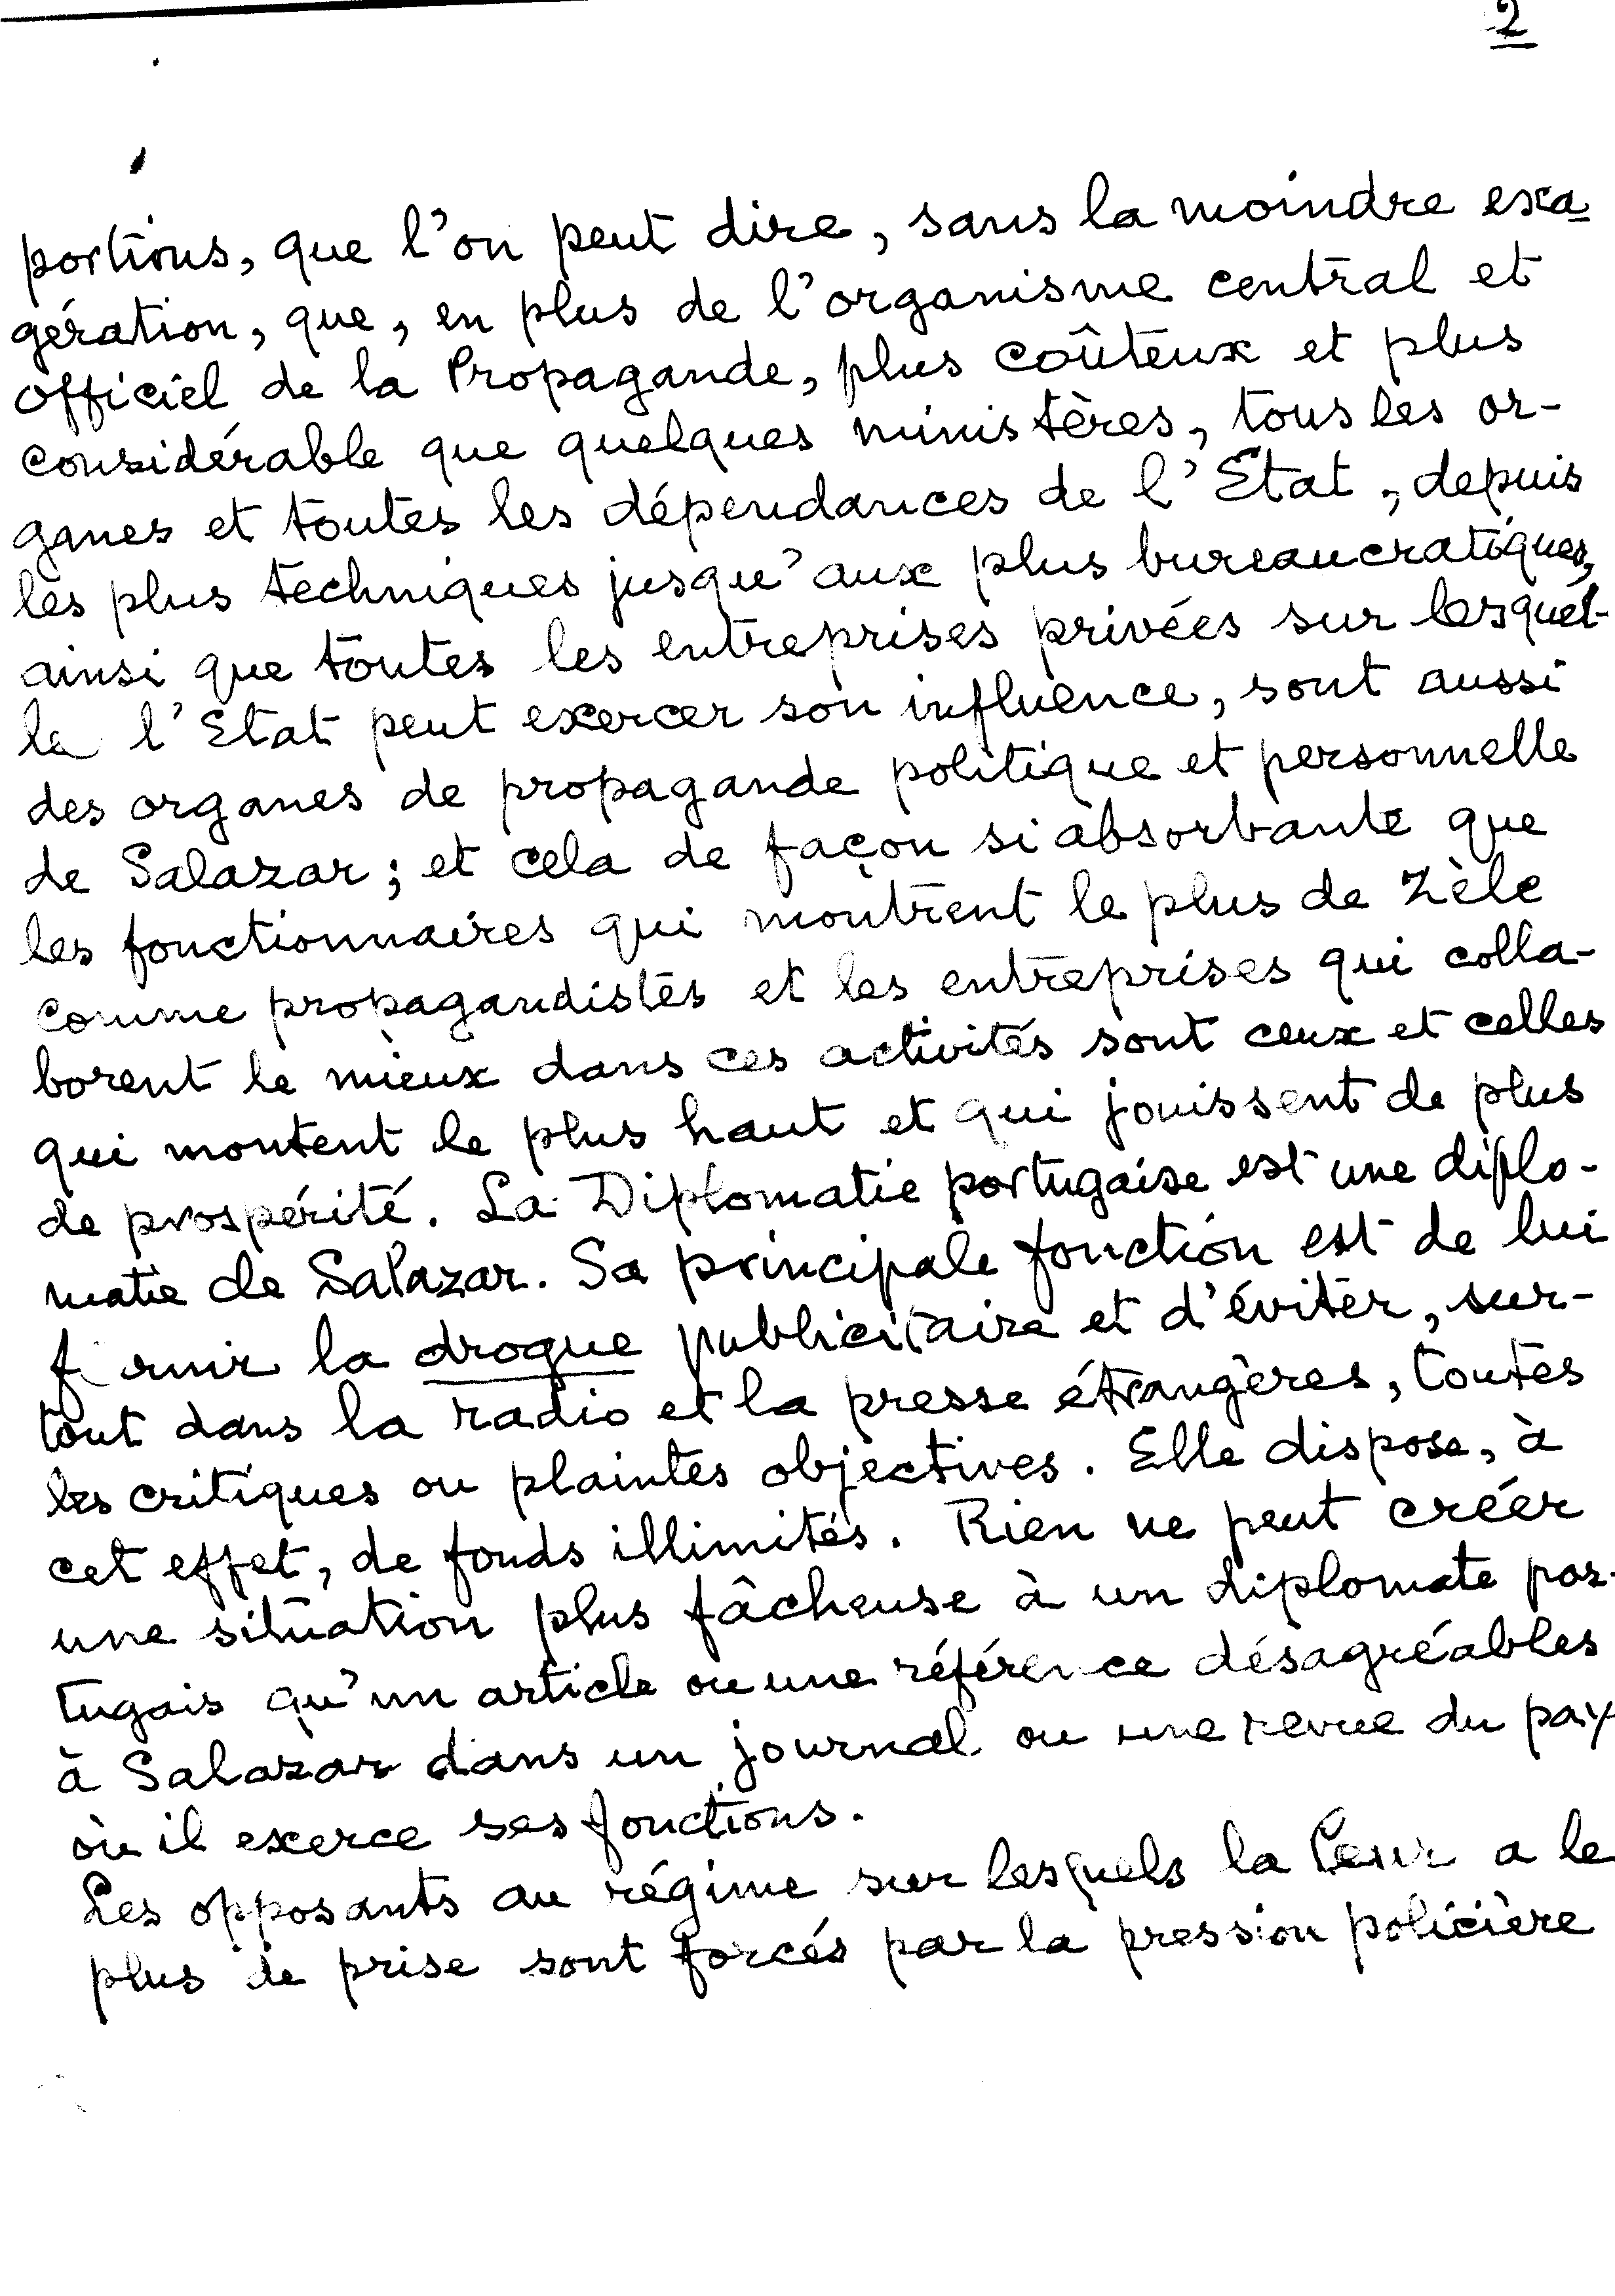 2
portions, que l'on peut dire, sans la moindre exa-
gération, que, en plus de l'organisme central et
officiel de la Propagande, plus coûteux et plus
considérable que quelques ministères, tous les or-
ganes et toutes les dépendances de l'Etat, depuis
les plus techniques jusqu'aux plus bureaucratiques,
ainsi que toutes les entreprises privées sur lesquel-
le l'Etat peut exercer son influence, sont aussi
des organes de propagande politique et personnelle
de Salazar; et cela de façon si absorbante que
les fonctionnaires qui montrent le plus de zèle
comme propagandistes et les entreprises qui colla-
borent le mieux dans ces activités sont ceux et celles
qui montent le plus haut et qui jouissent de plus
de prospérité. La Diplomatie portugaise est une diplo-
matie de Salazar. Sa principale fonction est de lui
fournir la drogue publicitaire et d'éviter, sur-
tout dans la radio et la presse étrangères, toutes
les critiques ou plaintes objectives. Elle dispose, à
cet effet, de fonds illimités. Rien ne peut créer
une situation plus fâcheuse à un diplomate por-
tugais qu'un article ou une référence désagréables
à Salazar dans un journal ou une revue du pays
où il exerce ses fonctions.
Les opposants au régime sur lesquels la Peur a le
plus de prise sont forcés par la pression policière